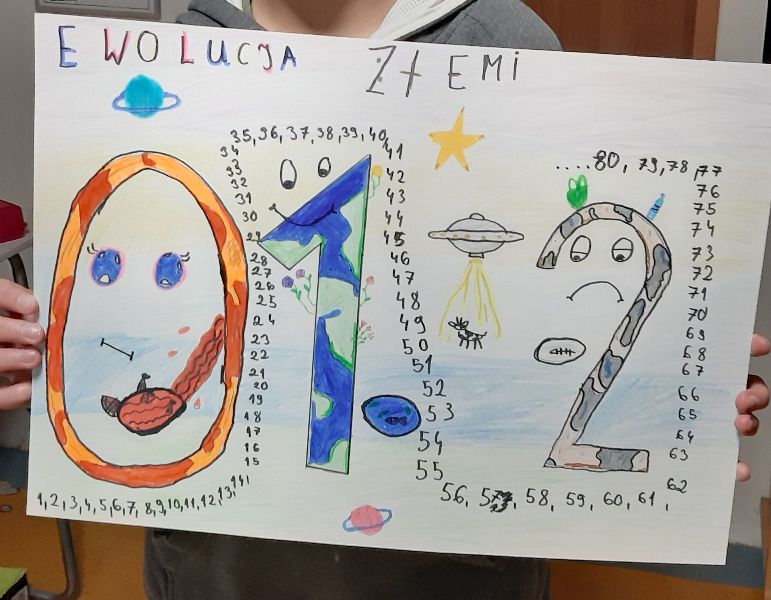 EWOLUCJA ZIEMI
1, 2, 3, 4, 5, 6, 7, 8, 9, 10, 11, 12, 13, 14,
15
16
17
18
19
20
21
22
23
24
25
26
27
28
29
30
31
32
33
34
35, 36, 37, 38, 39, 40,
41
42
43
44
45
46
47
48
49
50
51
52
53
54
55
56, 57, 58, 59, 60, 61,
62
63
64
65
66
67
68
69
70
71
72
73
74
75
76
.....80, 79, 78, 77
0
1
2